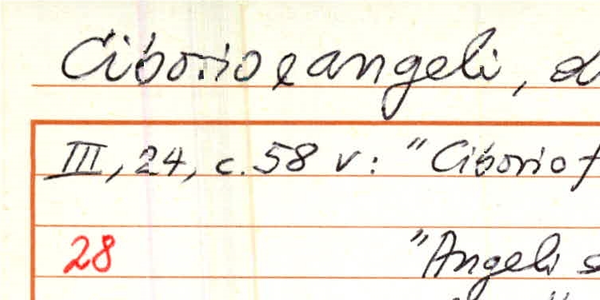 Ciborio e angeli, d
III, 24, c. 58 v: "Ciborio f
28 "Angeli e